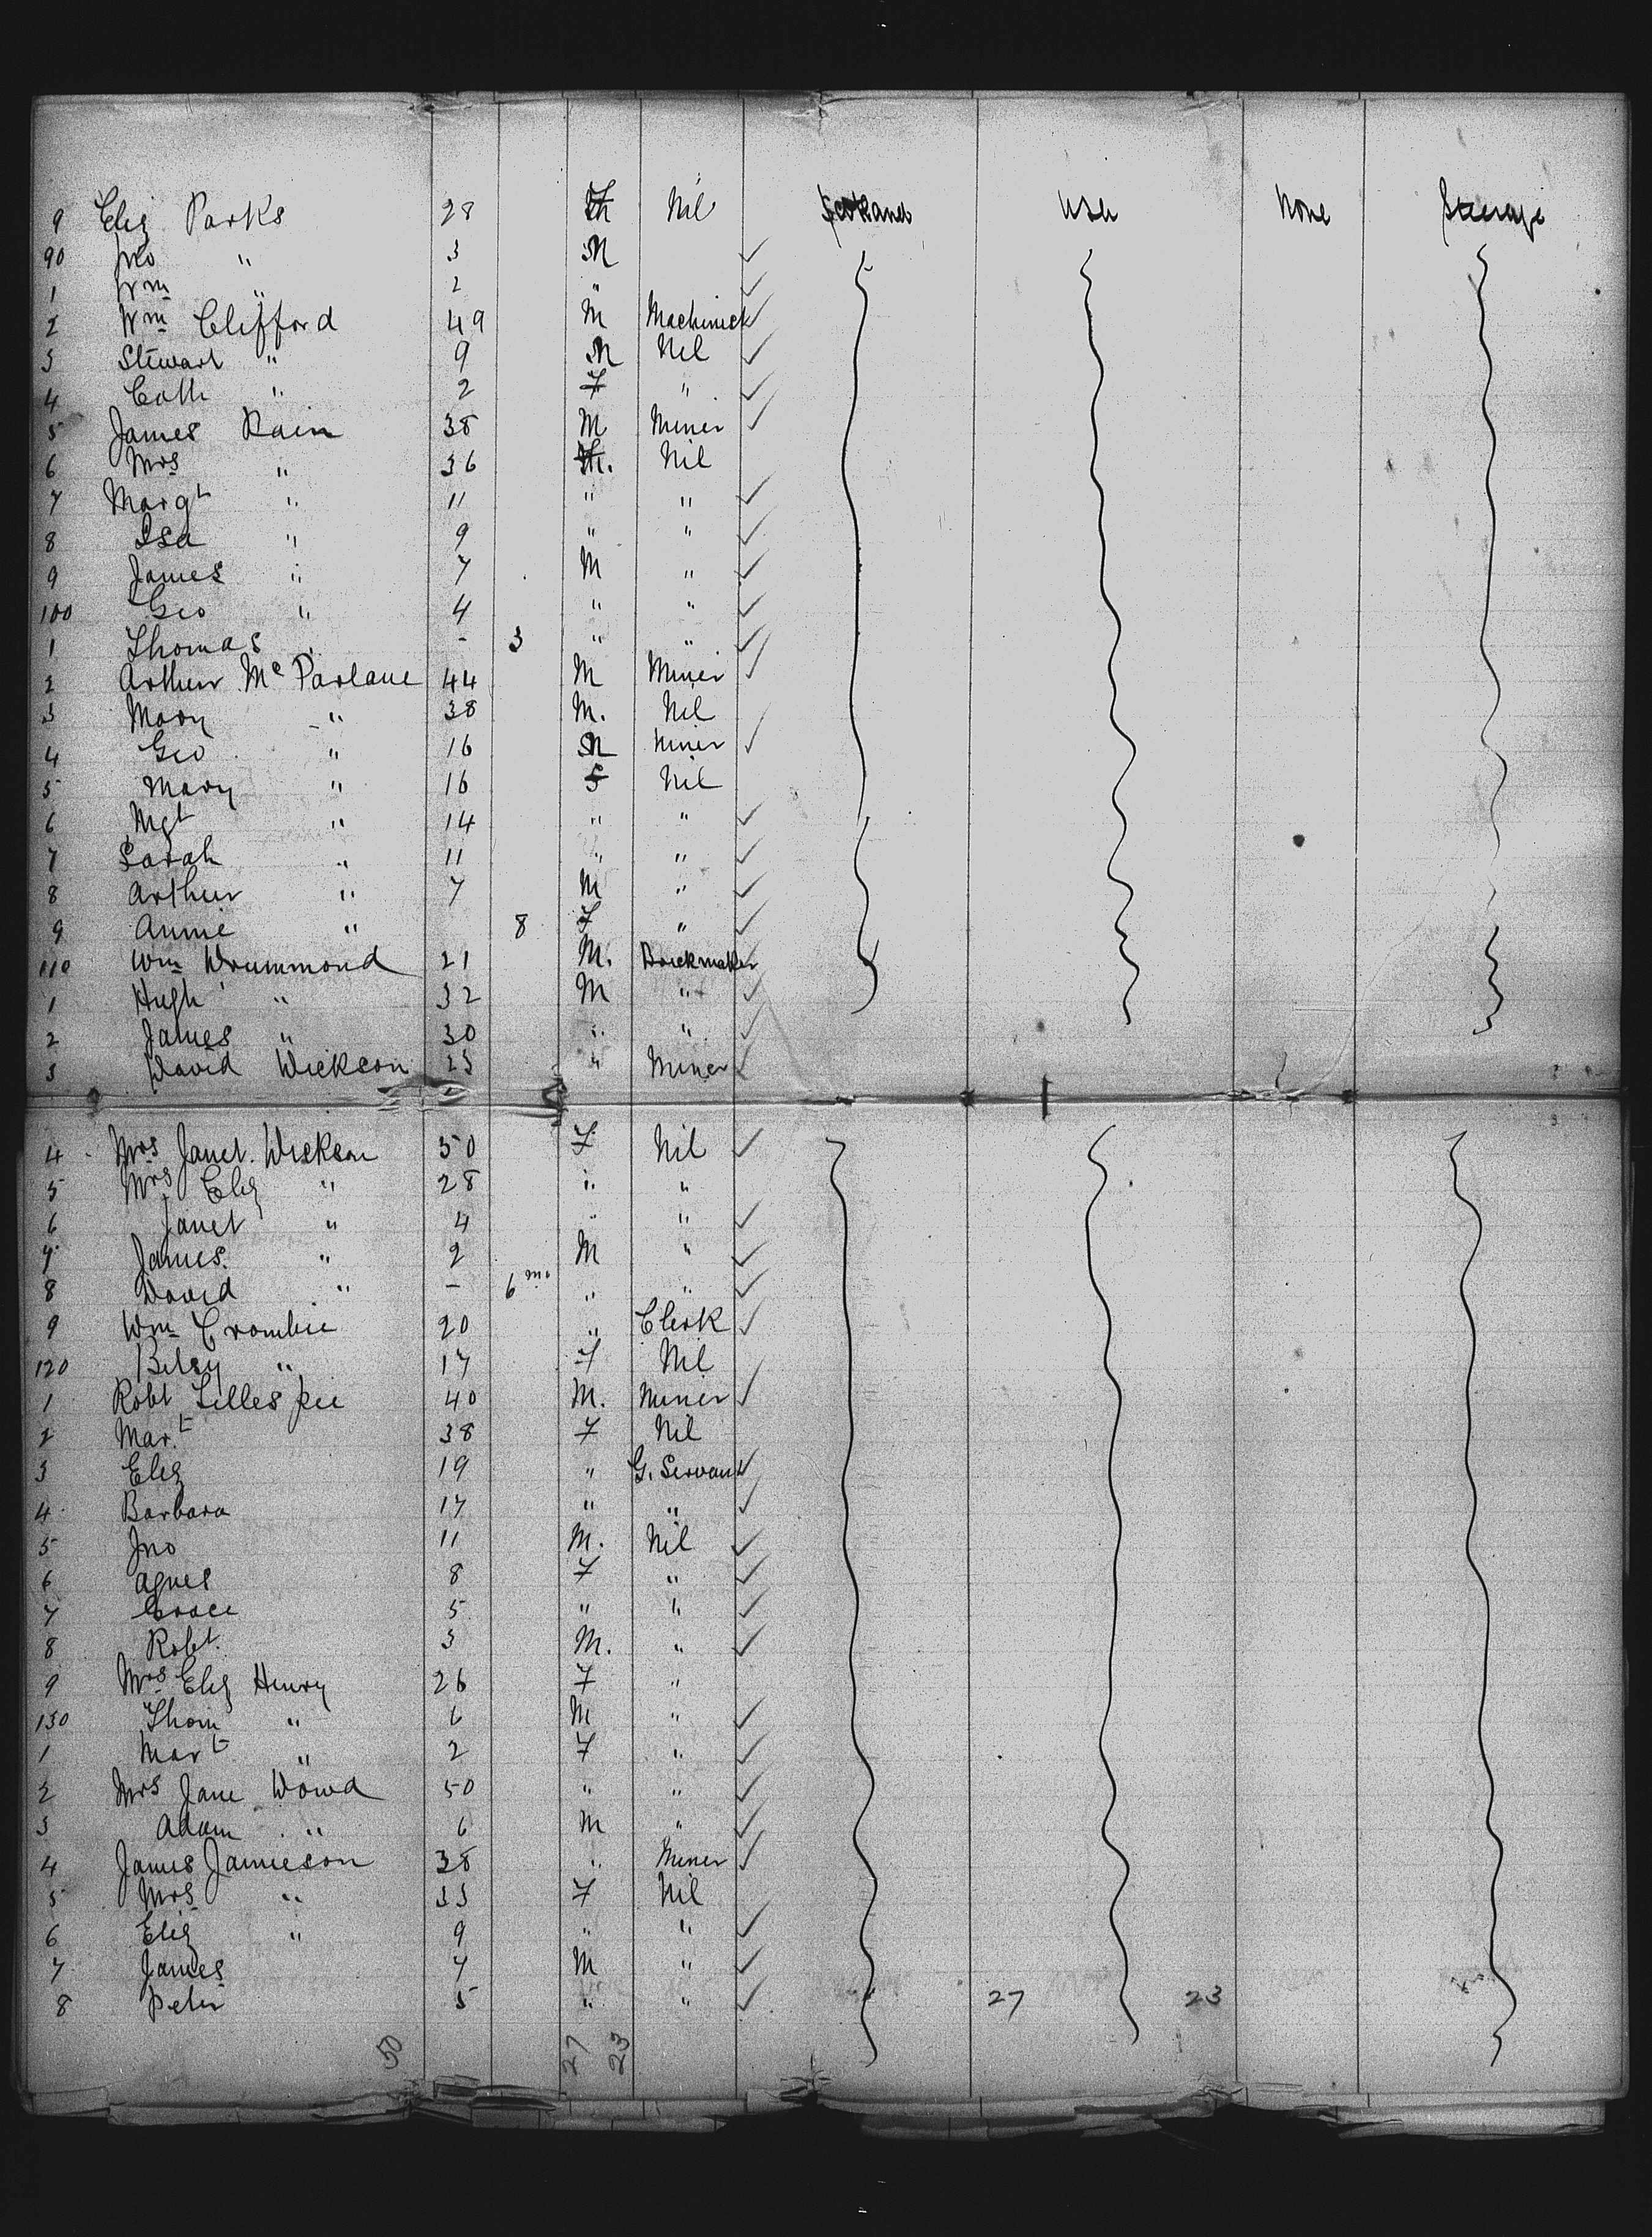 9 Eliz Parks 28 F Nil Scotland USA None Steerage
90 Jno " 3 M
1 Wm " 2 "
2 Wm Clifford 49 M Machinick
3 Stewart " 9 M Nil
4 Cath " 2 F "
5 James Rain 38 M Miner
6 Mrs " 36 F. Nil
7 Margt " 11 " "
8 Isa " 9 " "
9 James " 7 M "
100 Geo " 4 " "
1 Thomas " - 3 " "
2 Arthur Mc Parlane 44 M Miner
3 Mary " 38 M. Nil
4 Geo " 16 M Miner
5 Mary " 16 F Nil
6 Mgt " 14 " "
7 Sarah " 11 " "
8 Arthur " 7 M "
9 Annie " 8 F "
110 Wm Drummond 21 M. Brickmaker
1 Hugh " 32 M "
2 James " 30 " "
3 David Dickson 25 " Miner
4 Mrs Janet Dickson 50 F Nil
5 Mrs Eliz " 28 " "
6 Janet " 4 " "
7 James " 2 M "
8 David " - 6 mo " "
9 Wm Crombie 20 " Clerk
120 Betsy " 17 F Nil
1 Robt Gillespie 40 M. Miner
2 Mart 38 F Nil
3 Eliz 19 " G. Servant
4 Barbara 17 " "
5 Jno 11 M. Nil
6 Agnes 8 F "
7 Grace 5 " "
8 Robt 3 M. "
9 Mrs Eliz Henry 26 F "
130 Thom " 6 M "
1 Mart " 2 F "
2 Mrs Jane Dowd 50 " "
3 Adam " 6 M "
4 James Jamieson 38 " Miner
5 Mrs " 33 F Nil
6 Eliz " 9 " "
7 James 7 M "
8 Peter 5 " " 27 23
50 27 23